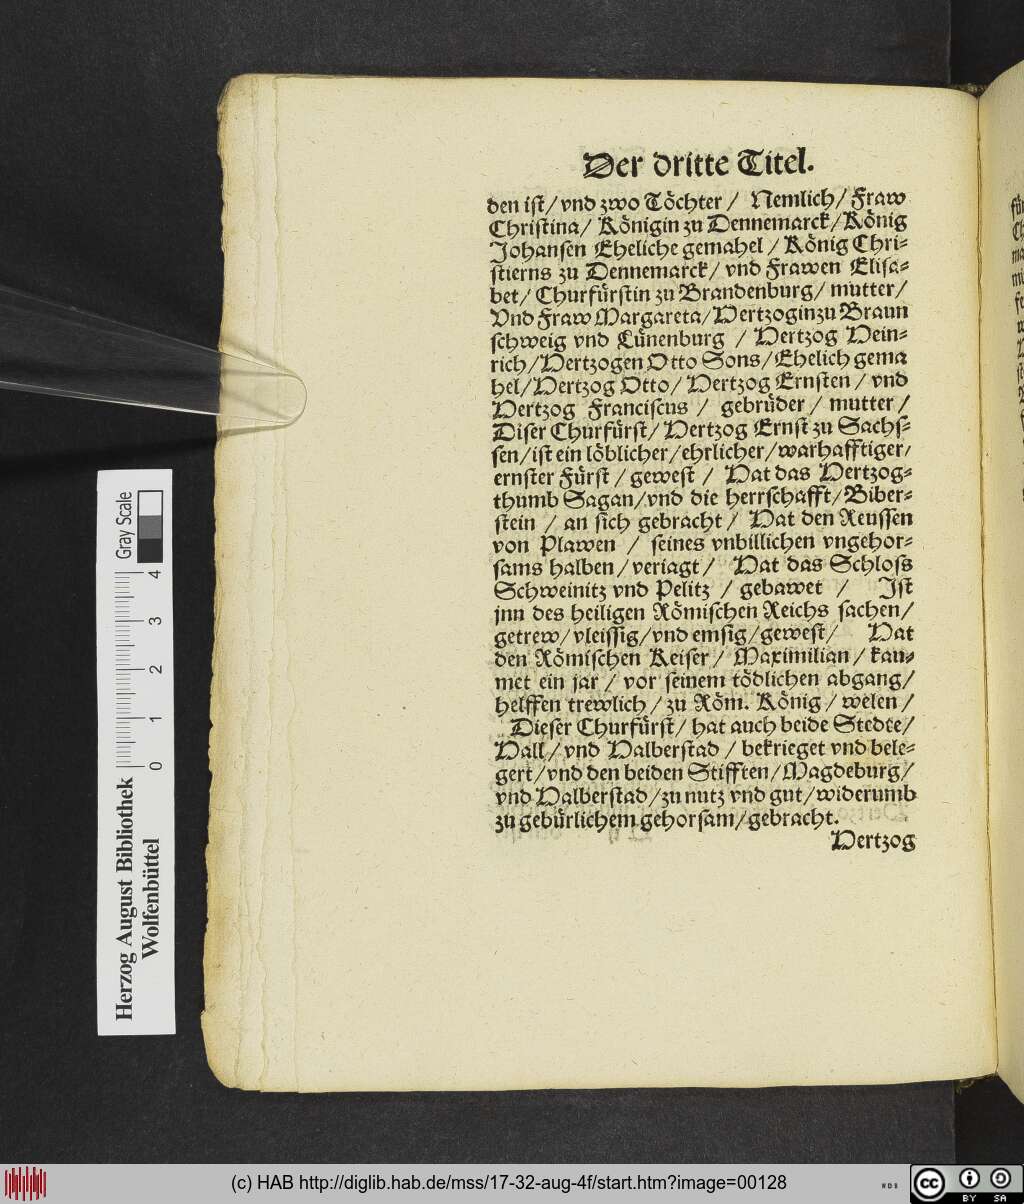 Der dritte Titel.
den ist/ vnd zwo Töchter / Nemlich/ Fraw
Christina/ Königin zu Dennemarck/ König
Johansen Eheliche gemahel / König Chri-
stierns zu Dennemarck/ vnd Frawen Elisa-
bet/ Churfürstin zu Brandenburg/ mutter/
Vnd Fraw Margareta/ Hertzoginzu Braun
schweig vnd Lünenburg / Hertzog Hein-
rich/ Hertzogen Otto Sons/ Ehelich gema
hel/ Hertzog Otto/ Hertzog Ernsten / vnd
Hertzog Franciscus / gebrüder / mutter /
Diser Churfürst/ Hertzog Ernst zu Sachs-
sen/ ist ein löblicher/ ehrlicher/ warhafftiger/
ernster Fürst / gewest / Hat das Hertzog-
thumb Sagan/ vnd die herrschafft/ Biber-
stein / an sich gebracht / Hat den Reussen
von Plawen / seines vnbillichen vngehor-
sams halben / veriagt / Hat das Schloss
Schweinitz vnd Pelitz / gebawet / Ist
jnn des heiligen Römischen Reichs sachen/
getrew/ vleissig/ vnd emsig/ gewest/ Hat
den Römischen Keiser / Maximilian / kau-
met ein jar / vor seinem tödlichen abgang/
helffen trewlich / zu Röm. König / welen /
Dieser Churfürst/ hat auch beide Stedte/
Hall / vnd Halberstad / bekrieget vnd bele-
gert/ vnd den beiden Stifften/ Magdeburg/
vnd Halberstad/ zu nutz vnd gut/ widerumb
zu gebürlichem gehorsam/ gebracht.
Hertzog
Herzog August Bibliothek
Wolfenbüttel
0 1 2 3 4
Gray Scale
(c) HAB http://diglib.hab.de/mss/17-32-aug-4f/start.htm?image=00128
WDB
cc BY SA